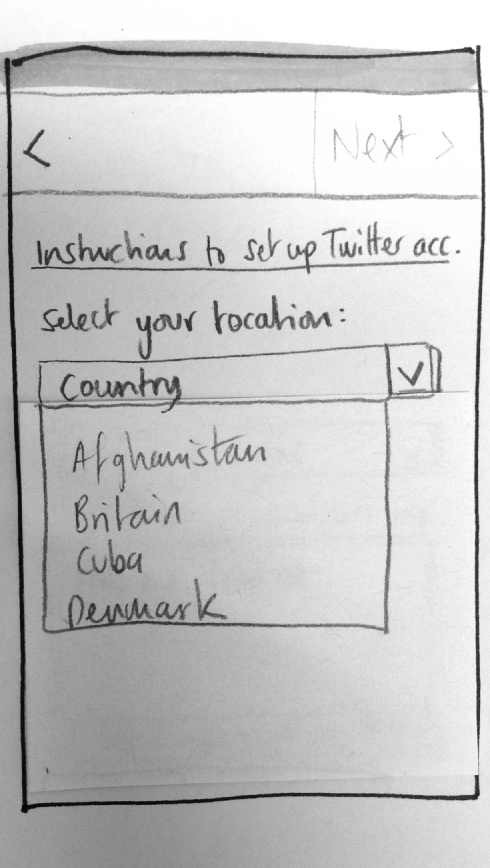 < Next >
Instructions to set up Twitter acc.
Select your location:
Country
Afghanistan
Britain
Cuba
Denmark